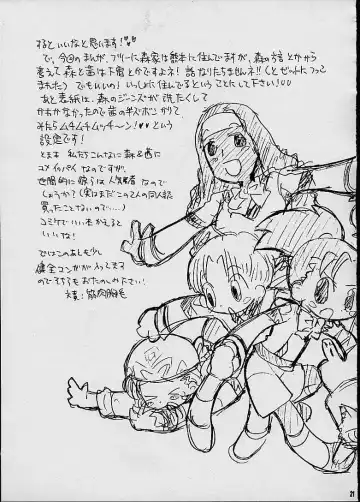 するといいなと思います!
で、今回のまんが、フツーに森家は熊本に住んでますが、森の方言とかから
考えて森と茜は下宿とかですよネ!話なりたちませんネ!!(とゼットにつっこ
まれた)でもいいの!いっしょに住んでるということにして下さい!
あと表紙は、森のジーンズが洗たくして
かわかなかったので茜の半ズボンがりて
そしたらムチムチムッチ〜ン!という
設定です!
とまあ私たちこんなに森&茜に
コメイッパイなのですが、
世間的に嫁うは人気者なので
しょうか?(実はまだこの2人の同人誌
買ったことないので…)
コミケでいい本かえると
いいな!
ではこのあとも少し
健全コンがが入ってます
のでそちらもおたのしみ下さい!
21